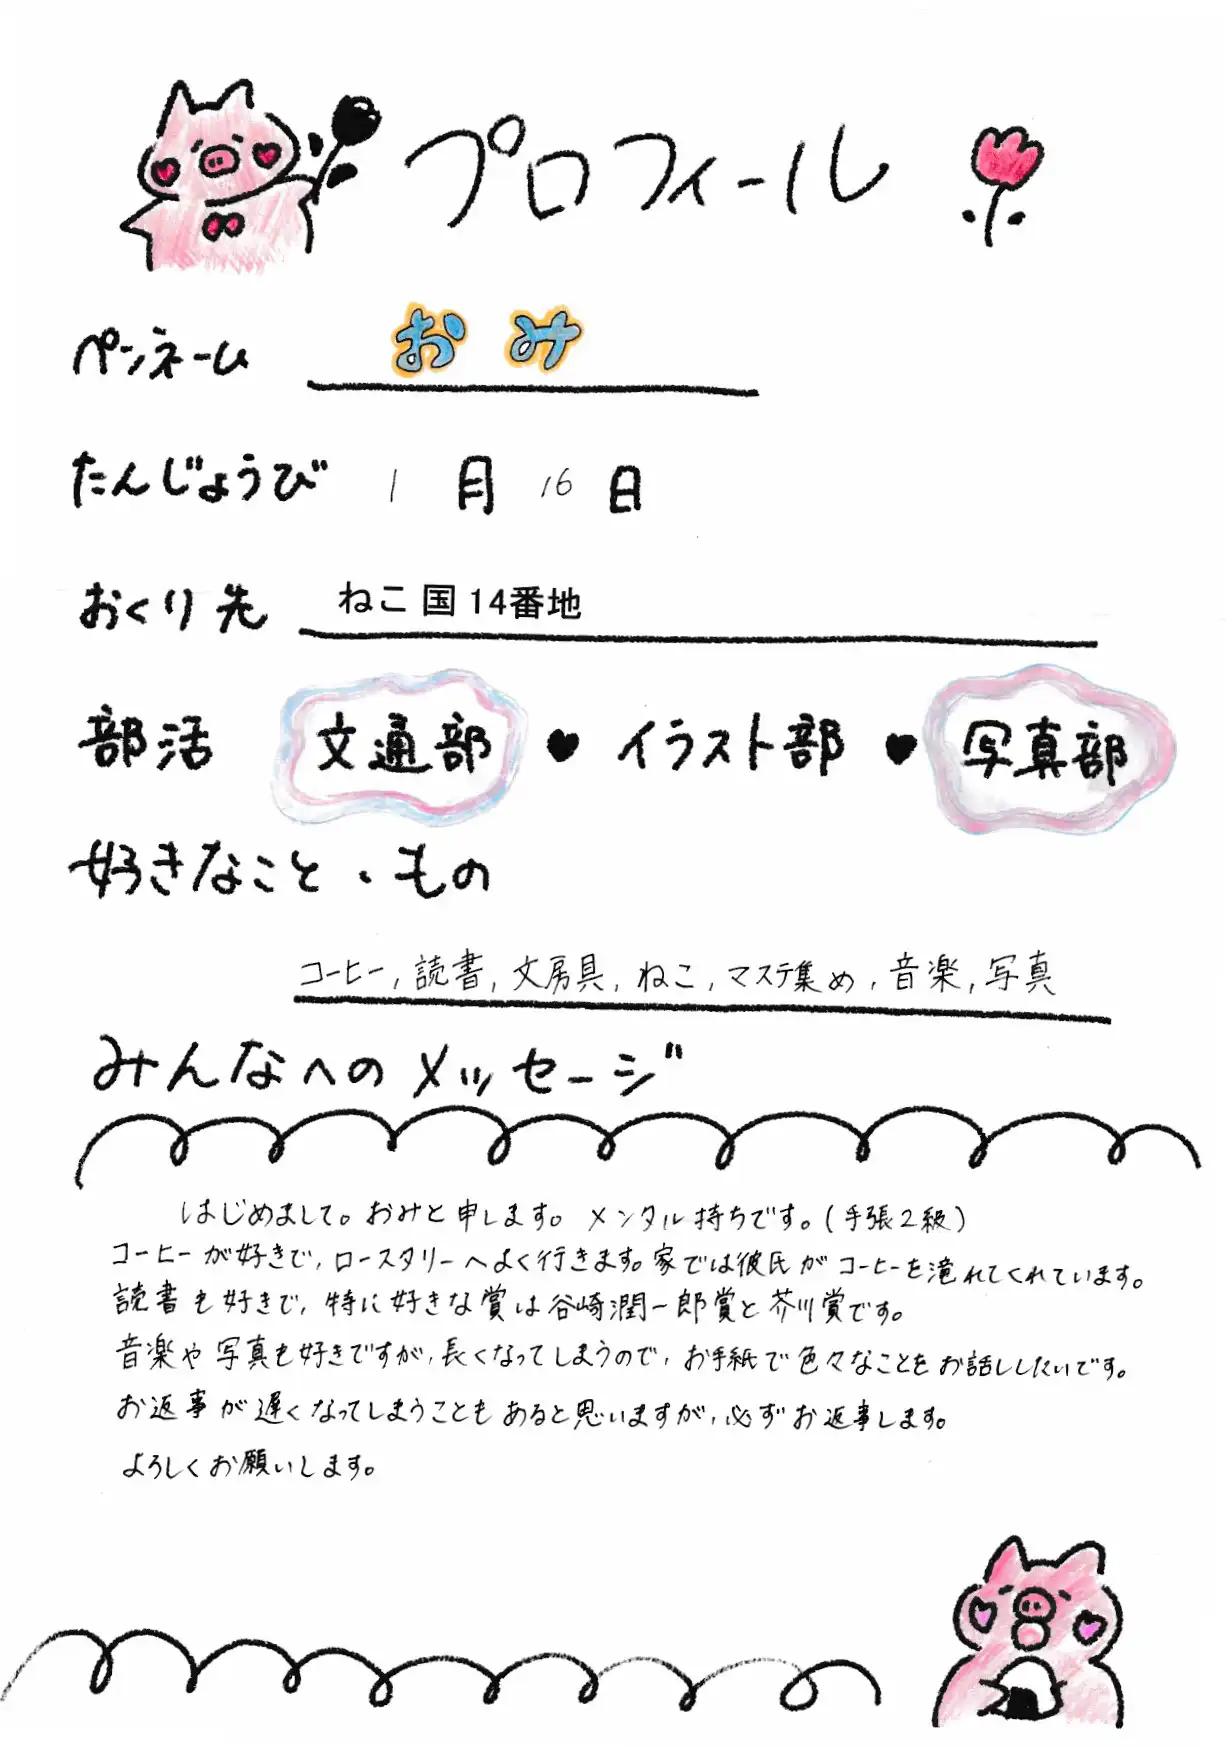 プロフィール
ペンネーム おみ
たんじょうび 1月16日
おくり先 ねこ国14番地
部活 文通部♥イラスト部♥写真部
好きなこと・もの
コーヒー,読書,文房具,ねこ,マステ集め,音楽,写真
みんなへのメッセージ
はじめまして。おみと申します。メンタル持ちです。(手張2級)
コーヒーが好きで,ロースタリーへよく行きます。家では彼氏がコーヒーを滝れてくれています。
読書も好きで,特に好きな賞は谷崎潤一郎賞と芥川賞です。
音楽や写真も好きですが,長くなってしまうので,お手紙で色々なことをお話ししたいです。
お返事が遅くなってしまうこともあると思いますが,必ずお返事します。
よろしくお願いします。